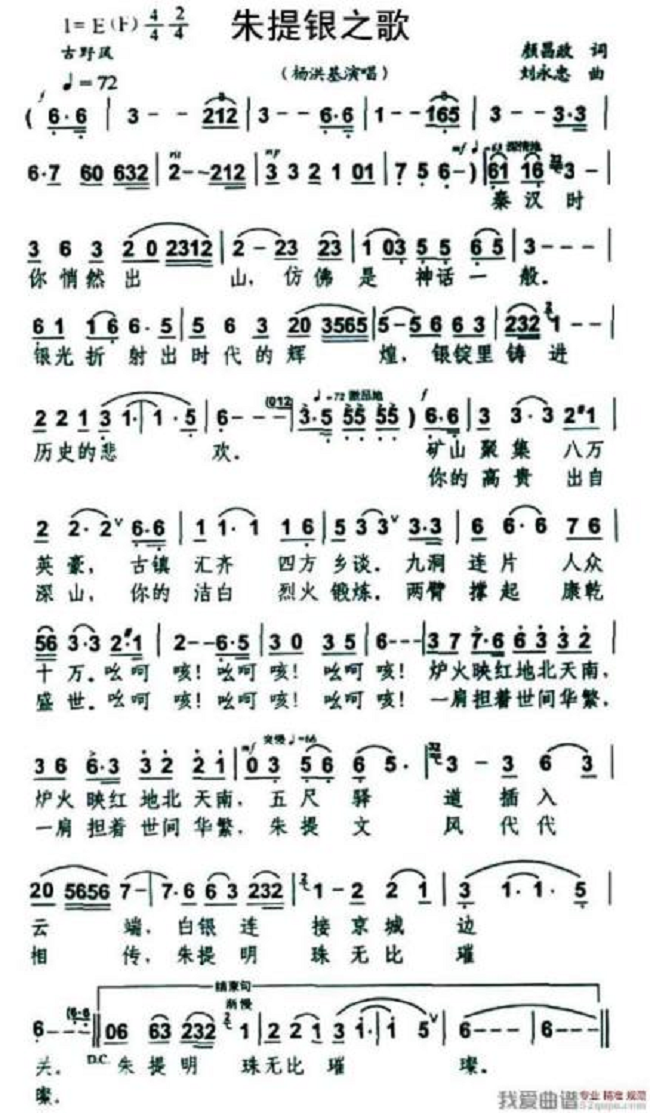 朱提银之歌
1=E(F) 4/4 2/4
古野风
颜昌政 词
♩=72
(杨洪基演唱)
刘永忠 曲
f
( 6·6 | 3 - - 212 | 3 - - 6·6 | 1 - - 165 | 3 - - 3·3 |
rit mp mf
6·7 60 632 | 2 - - 212 | 3 3 2 1 01 | 7 5 6 - ) | 61 16 3 - |
秦汉时
3 6 3 2 0 2312 | 2 - 23 23 | 1 03 5 5 65 | 3 - - - |
你悄然出 山, 仿佛是 神话一 般。
61 16 6·5 | 5 6 3 20 3565 | 5 - 5 6 63 | 232 1 - - |
银光折 射出时代的辉 煌, 银锭里铸进
2 2 1 3 1· | 1·5 | 6 - - - (012 | 3·5 55 55 ) | 6·6 | 3 3·3 2 1 |
♩=72 激昂地
f
历史的悲 欢。 矿山 聚集 八万
你的 高贵 出自
2 2·2 6·6 | 1 1·1 1 6 | 5 33· 3·3 | 6 6·6 7 6 |
英豪, 古镇 汇齐 四方 乡谈。九洞 连片 人众
深山, 你的 洁白 烈火 锻炼。两臂 撑起 康乾
56 3·3 2·1 | 2 - - 6·5 | 3 0 3 5 | 6 - - - | 3 7 7·6 6 3 3 2 |
十万。吆呵 咳!吆呵 咳!吆呵 咳! 炉火映红地北天南,
盛世。吆呵 咳!吆呵 咳!吆呵 咳! 一肩担着世间华繁,
mf 突慢 ♩=66
3 6 6·3 3 2 2 1 | 0 3 5 6 6 5· | 3 - 3 6 3 |
炉火 映红 地北 天南, 五尺 驿 道 插入
一肩 担着 世间 华繁, 朱提 文 风 代代
20 5656 7 - | 7·6 63 232 | 1 - 2 2 1 | 3 1·1·5 |
云 端, 白银 连 接 京城 边
相 传, 朱提 明 珠 无比 璀
结束句
渐慢
6 - - (6·6 06 63 232 1 | 2 2 1 3 1· | 1· 1 5 | 6 - - - | 6 - - - |
关。 D.C. 朱提明 珠无比 璀 璨。
璨。
我爱曲谱 专业 精准 规范